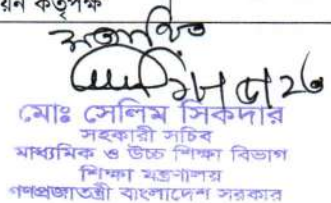 য়ন কর্তৃপক্ষ
সত্যায়িত
মোঃ সেলিম সিকদার
সহকারী সচিব
মাধ্যমিক ও উচ্চ শিক্ষা বিভাগ
শিক্ষা মন্ত্রণালয়
গণপ্রজাতন্ত্রী বাংলাদেশ সরকার